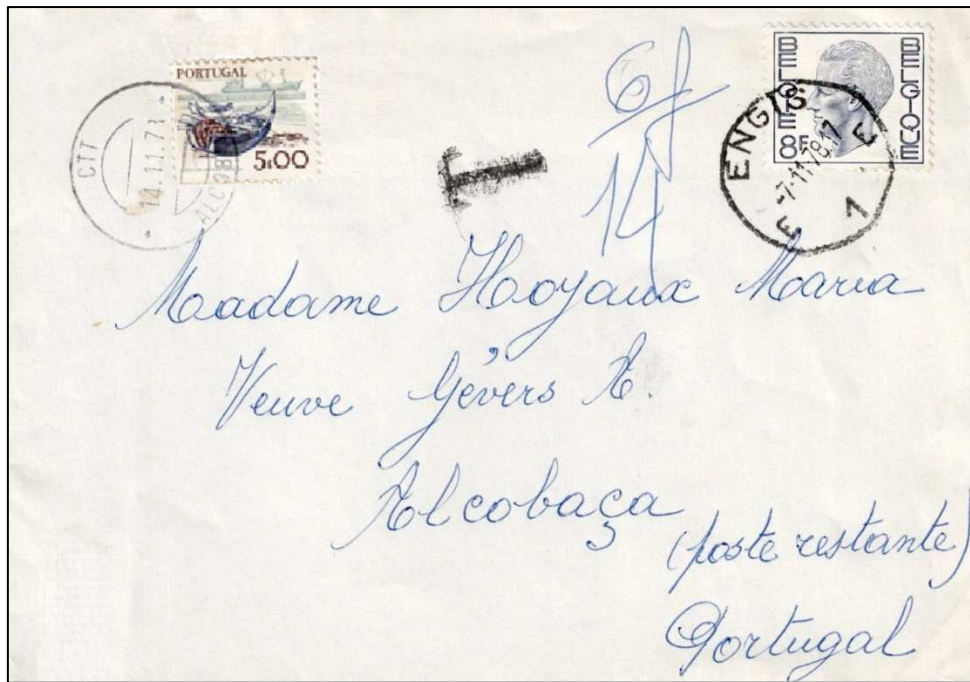 PORTUGAL
5$00
CTT
10.11.78
ALCOB
T
6f
14
BELGIQUE
BELGIE
8F
ENGIS
-7-11-78.17
E
F
1
Madame Hoyaux Maria
Veuve Gévers A.
Alcobaça
(poste restante)
Portugal